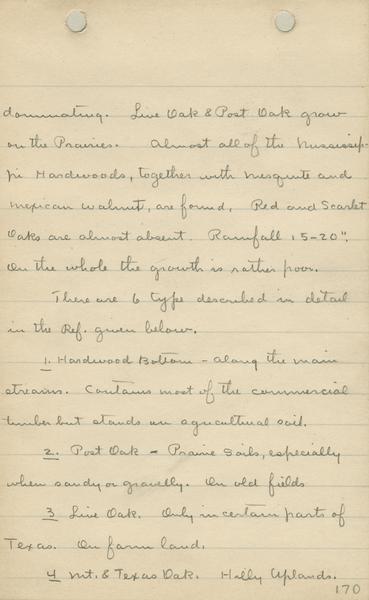 dominating. Live Oak & Post Oak grow
on the Prairies. Almost all of the Mississip-
pi Hardwoods, together with Mesquite and
Mexican walnut, are found. Red and Scarlet
Oaks are almost absent. Rainfall 15-20".
On the whole the growth is rather poor.
There are 6 type described in detail
in the Ref. given below.
1. Hardwood Bottom - along the main
streams. Contains most of the commercial
timber but stands on agricultural soil.
2. Post Oak - Prairie Soils, especially
when sandy or gravelly. On old fields
3 Live Oak. Only in certain parts of
Texas. On farm land.
4 Mt. & Texas Oak. Hilly Uplands.
170